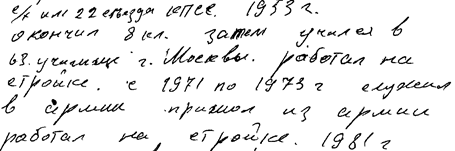 с/х им. 22 съезда КПСС. 1953 г.
окончил 8 кл. затем учился в
63. училище г. Москвы. работал на
стройке. с 1971 по 1973 г служил
в армии пришол из армии
работал на стройке. 1981 г